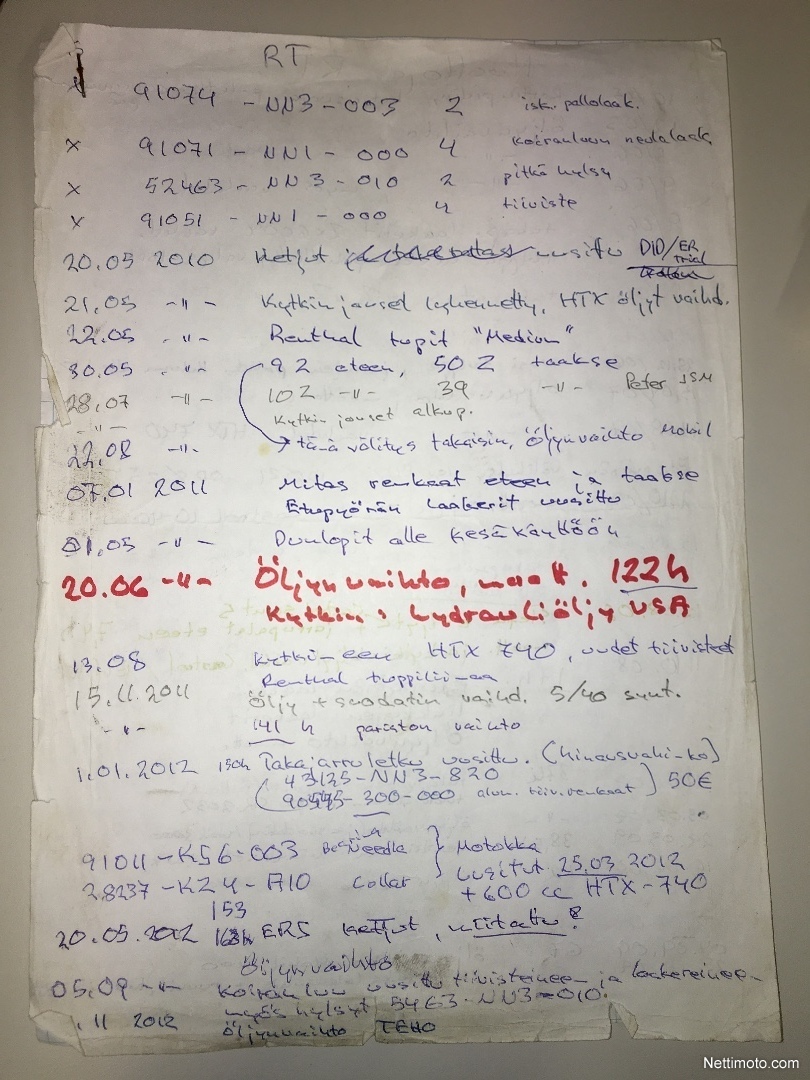 RT
x 91074 - NN3 - 003 2 isk. pallolaak.
x 91071 - NN1 - 000 4 koiranluun neulalaak.
x 52463 - NN3 - 010 2 pitkä hylsy
x 91051 - NN1 - 000 4 tiiviste
20.05 2010 Ketjut uusittu DID/ER
Trial
21.05 -"- Kytkin jouset lyhennetty, HTX öljyt vaihd.
22.05 -"- Renthal tupit "Medium"
30.05 -"- 9 Z eteen, 50 Z taakse
28.07 -"- 10 Z -"- 39 -"- Peter JSM
-"- Kytkin jouset alkup.
22.08 -"- tämä välitys takaisin, Öljynvaihto Mobil
07.01 2011 Mitas renkaat eteen ja taakse
Etupyörän laakerit uusittu
01.05 -"- Dunlopit alle kesäkäyttöön
20.06 -"- Öljynvaihto, 122h
Kytkin: hydrauliöljy USA
13.08 Kytkimeen HTX 740, uudet tiivisteet
Renthal
15.11.2011 Öljy + suodatin vaihd. 5/40 synt.
-"- 141 h pariston vaihto
1.01.2012 150h Takajarruletku uusittu.
43125-NN3-820
300-000 alum. tiiv. renkaat) 50€
91011 - KS6-003 Needle } Motokka
28237 - KZ4 - A10 Collar uusitut 25.03 2012
+ 600 cc HTX-740
153
20.05.2012 ERS ketjut,
Öljynvaihto
05.09 -"- Koiranluu uusittu tiivisteineen ja laakereineen
myös hylsyt 5463-NN3-010.
.11 2012 öljynvaihto TEHO
Nettimoto.com